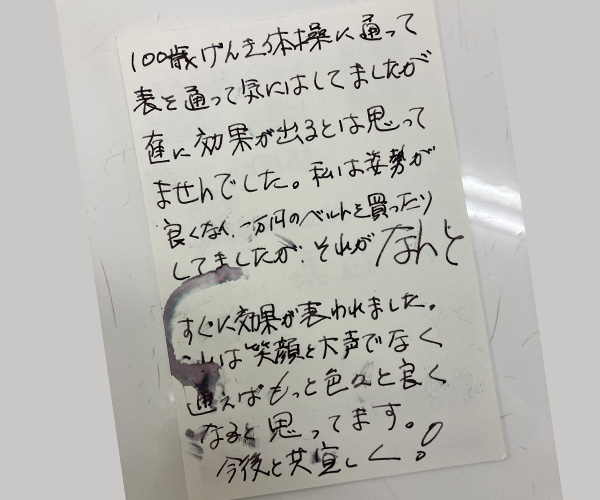 100歳げんき体操に通って
表を通って気にはしてましたが
に効果が出るとは思って
ませんでした。私は姿勢が
良くなく、一万円のベルトを買ったり
してましたが、それがなんと
すぐに効果が表われました。
これは笑顔と大声でなく
通えばもっと色々と良く
なると思ってます。
今後と共宜しく!